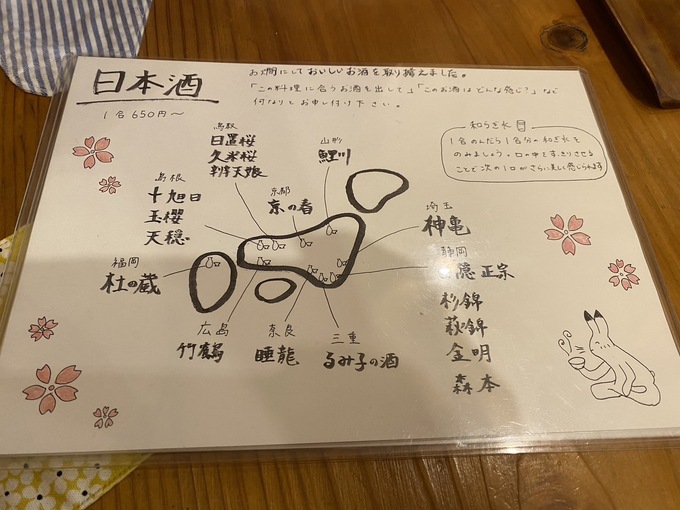 日本酒
1合 650円〜
お燗にしておいしいお酒を取り揃えました。
「この料理に合うお酒を出して」「このお酒はどんな感じ?」など
何なりとお申し付け下さい。
和らぎ水
1合のんだら1合分の和らぎ水を
のみましょう。口の中をすっきりさせる
ことで次の1口がさらに美しく感じられます
鳥取
日置桜
久米桜
弁天娘
山形
鯉川
島根
十旭日
玉櫻
天穏
京都
京の春
埼玉
神亀
福岡
杜の蔵
静岡
隠 正宗
杉錦
萩錦
金明
森本
広島
竹鶴
奈良
睡龍
三重
るみ子の酒